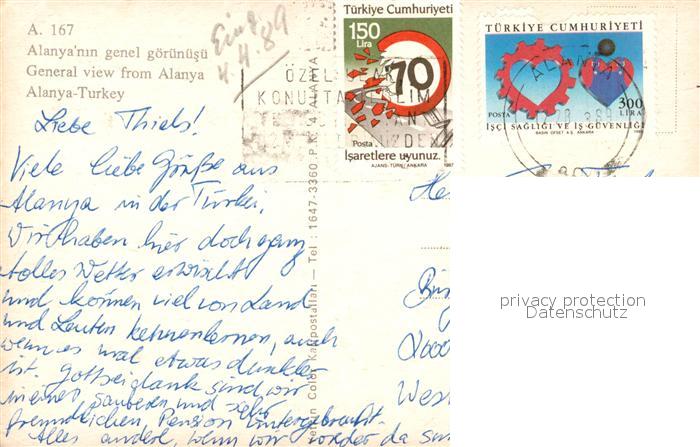 A. 167
Alanya'nın genel görünüşü
General view from Alanya
Alanya-Turkey
4.4.89
Türkiye Cumhuriyeti
150
Lira
70
Posta
İşaretlere uyunuz.
AJANS-TÜRK/ANKARA 1987
TÜRKİYE CUMHURİYETİ
POSTA
300
LİRA
İŞÇİ SAĞLIĞI VE İŞ GÜVENLİĞİ
ÖZEL
KONU
ALANYA
Liebe Thiels!
Viele liebe Grüße aus
Alanya in der Türkei.
Wir haben hier doch ganz
tolles Wetter erwischt
und können viel von Land
und Leuten kennenlernen, auch
wenn es mal etwas dunkler
ist. Gottseidank sind wir
in einer sauberen und sehr
freundlichen Pension untergebracht.
Alles andere, wenn wir wieder da sind
Color Kartpostalları — Tel : 1647-3360 P.K. 4 ALANYA
He
2000
Wes
privacy protection
Datenschutz